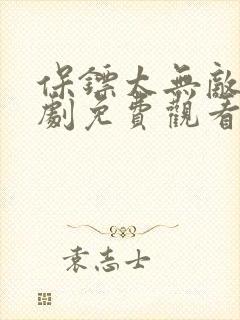 保鏢大無敵
劇免費觀看
袁志士